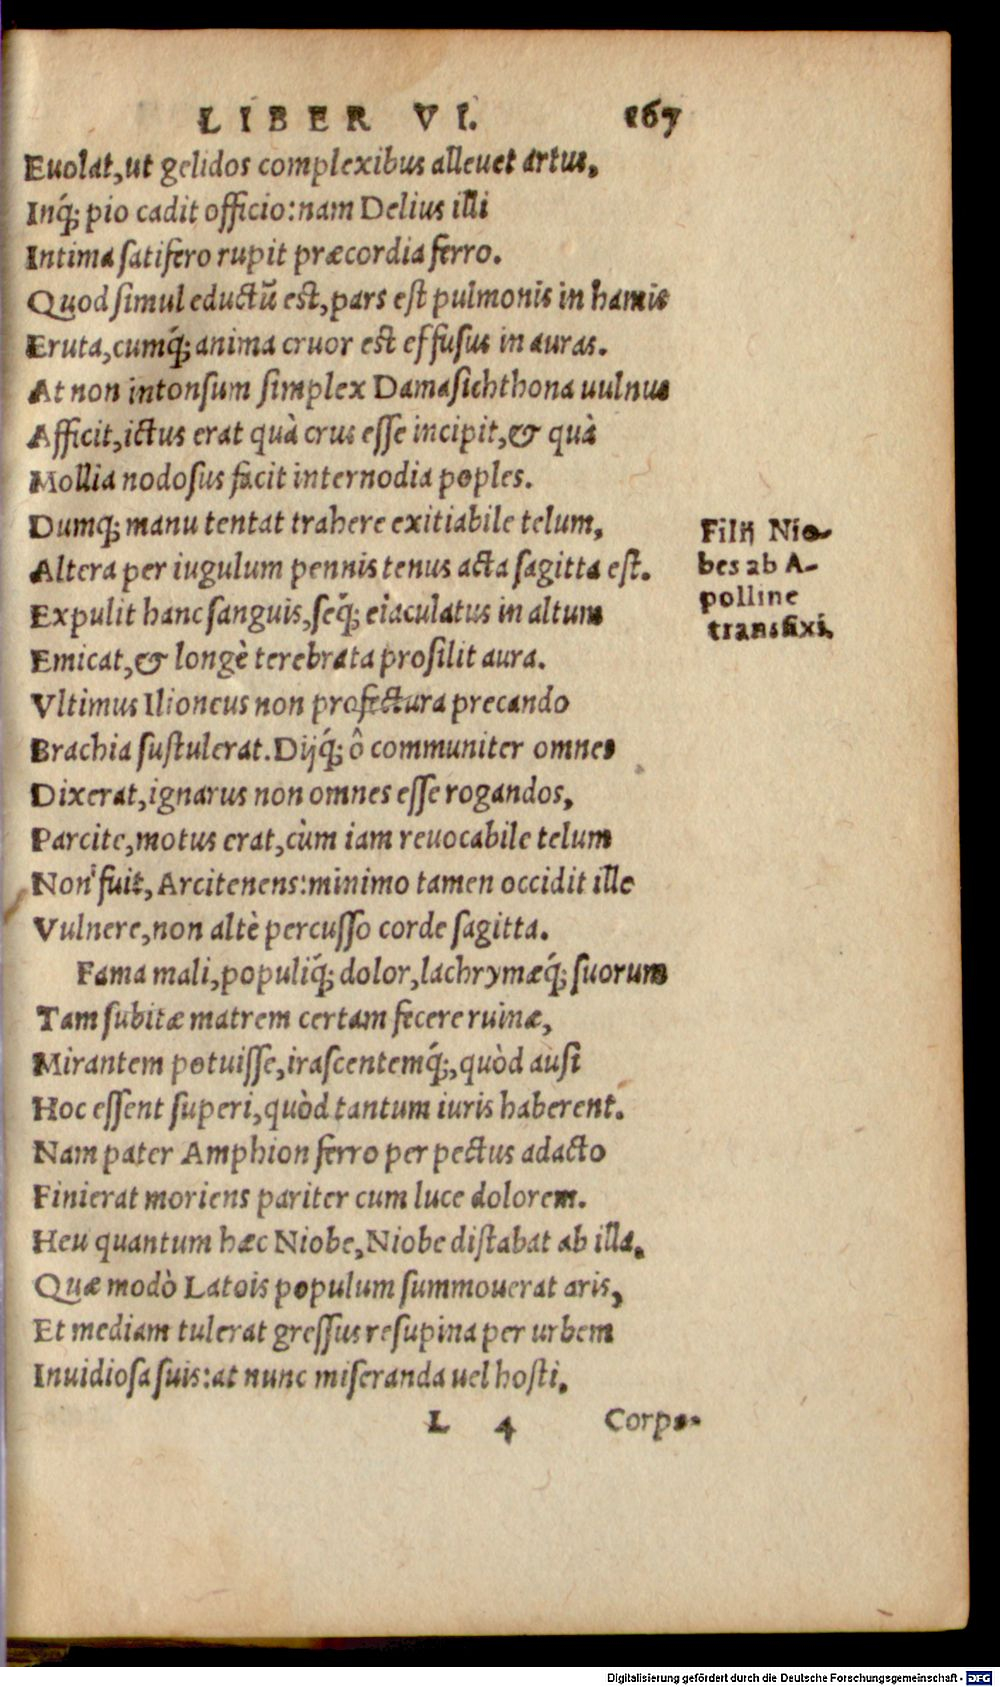 LIBER VI. 167
Euolat,ut gelidos complexibus alleuet artus,
Inq́; pio cadit officio:nam Delius illi
Intima fatifero rupit præcordia ferro.
Quod simul eductũ est,pars est pulmonis in hamis
Eruta,cumq́; anima cruor est effusus in auras.
At non intonsum simplex Damasichthona uulnus
Afficit,ictus erat quà crus esse incipit,& quà
Mollia nodosus facit internodia poples.
Dumq; manu tentat trahere exitiabile telum,
Altera per iugulum pennis tenus acta sagitta est.
Expulit hanc sanguis,seq́; eiaculatus in altum
Emicat,& longè terebrata prosilit aura.
Vltimus Ilioneus non profectura precando
Brachia sustulerat.Dijq́; ô communiter omnes
Dixerat,ignarus non omnes esse rogandos,
Parcite,motus erat,cùm iam reuocabile telum
Non fuit, Arcitenens:minimo tamen occidit ille
Vulnere,non altè percusso corde sagitta.
Fama mali,populiq́; dolor,lachrymæq́; suorum
Tam subitæ matrem certam fecere ruinæ,
Mirantem potuisse,irascentemq́;,quòd ausi
Hoc essent superi,quòd tantum iuris haberent.
Nam pater Amphion ferro per pectus adacto
Finierat moriens pariter cum luce dolorem.
Heu quantum hæc Niobe,Niobe distabat ab illa,
Quæ modò Latois populum summouerat aris,
Et mediam tulerat gressus resupina per urbem
Inuidiosa suis:at nunc miseranda uel hosti.
L 4 Corpo-
Filij Nio-
bes ab A-
polline
transfixi.
Digitalisierung gefördert durch die Deutsche Forschungsgemeinschaft - DFG